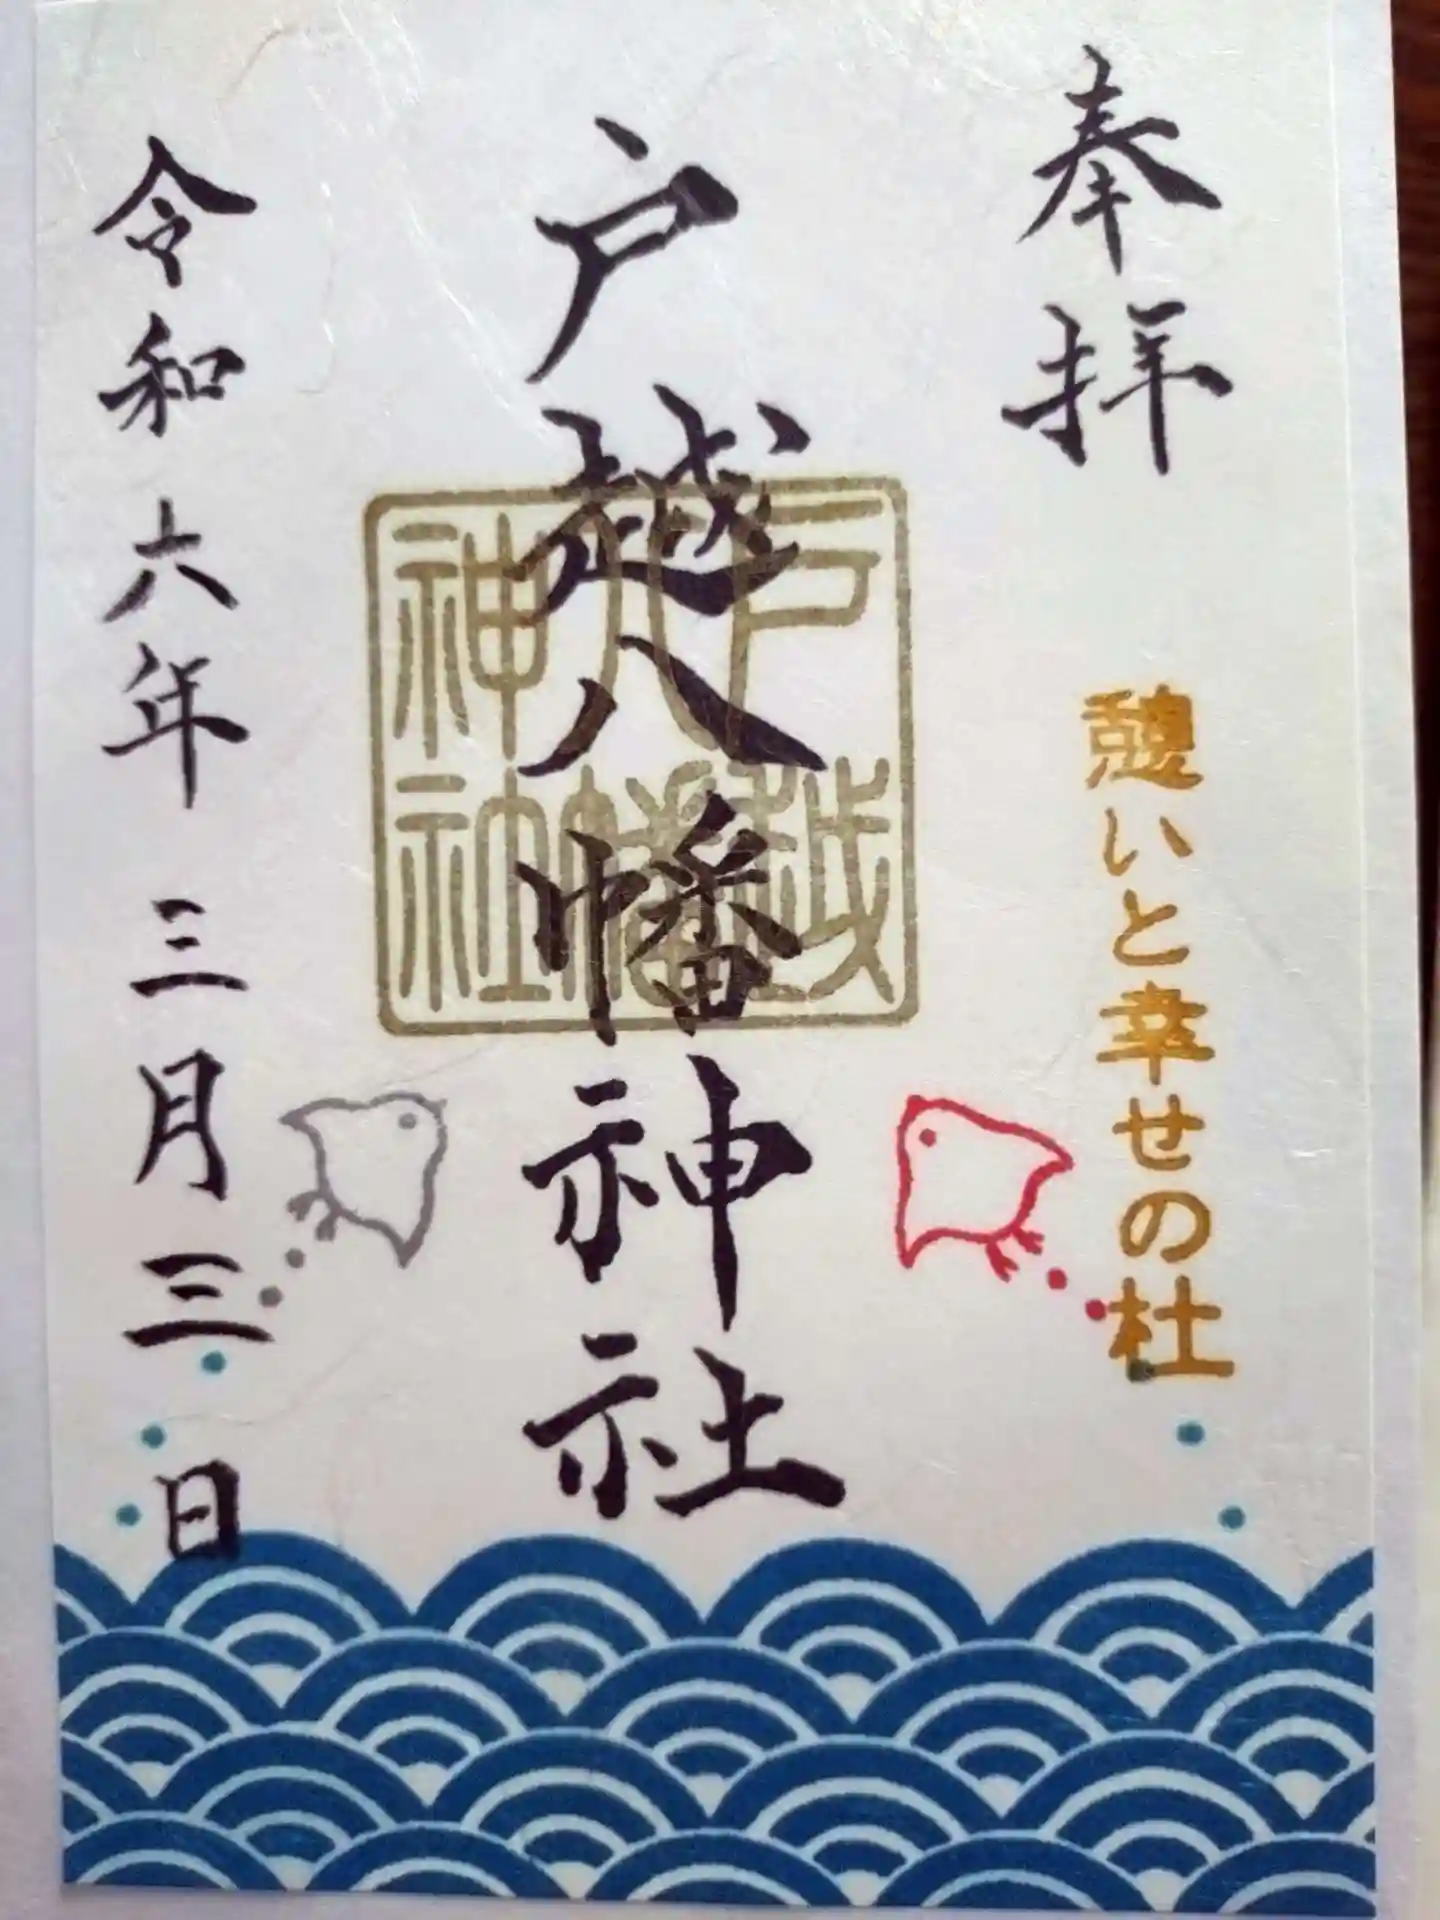 奉拝
憩いと幸せの杜
戸越八幡神社
戸越
八幡
神社
令和六年三月三日